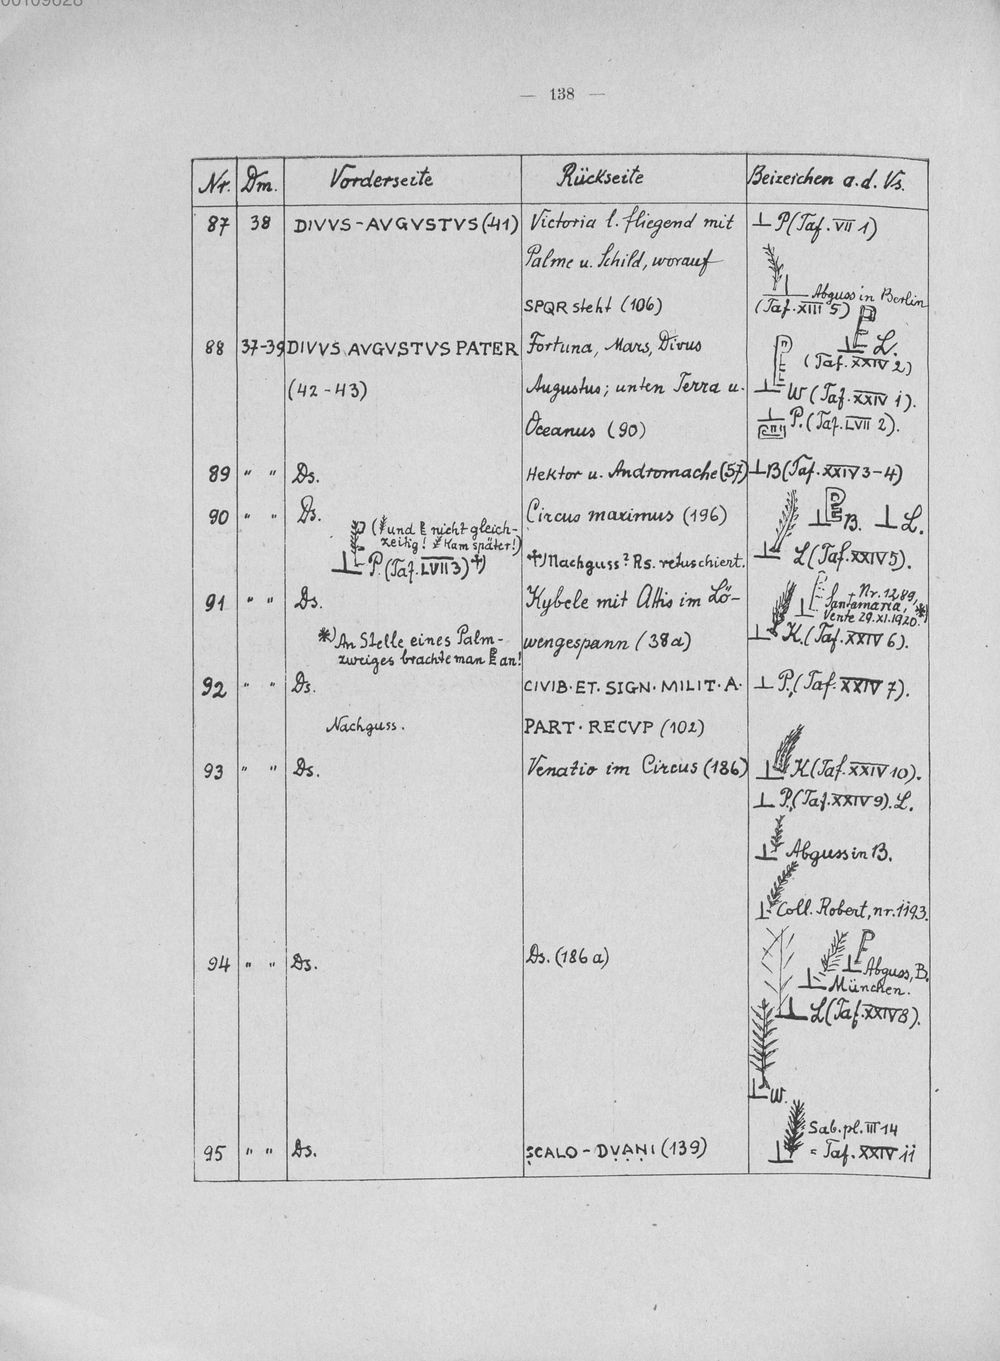 — 138 —
Nr. Dm. Vorderseite Rückseite Beizeichen a. d. Vs.
87 38 DIVVS-AVGVSTVS (41) Victoria l. fliegend mit ⊥ P (Taf. VII 1)
Palme u. Schild, worauf
SPQR steht (106) Abguss in Berlin
(Taf. XIII 5)
88 37-39 DIVVS AVGVSTVS PATER Fortuna, Mars, Divus L.
(Taf. XXIV 2)
(42-43) Augustus; unten Terra u. W (Taf. XXIV 1).
Oceanus (90) P. (Taf. LVII 2).
89 " " Ds. Hektor u. Andromache (57) ⊥ B (Taf. XXIV 3-4)
90 " " Ds. Circus maximus (196) B. ⊥ L.
( und nicht gleich-
zeitig! kam später!)
P. (Taf. LVII 3) ✝) ✝) Nachguss? Rs. retuschiert. L (Taf. XXIV 5).
91 " " Ds. Kybele mit Attis im Lö- Nr. 1289,
Santamaria, *)
Vente 29.XI.1920.
*) An Stelle eines Palm- wengespann (38a) K. (Taf. XXIV 6).
zweiges brachte man an!
92 " " Ds. CIVIB·ET·SIGN·MILIT·A· ⊥ P. (Taf. XXIV 7).
Nachguss. PART·RECVP (102)
93 " " Ds. Venatio im Circus (186) K (Taf. XXIV 10).
⊥ P. (Taf. XXIV 9). L.
Abguss in B.
Coll. Robert, nr. 1193.
94 " " Ds. Ds. (186a) Abguss, B.
München.
L (Taf. XXIV 8).
W.
Sab. pl. III 14
95 " " Ds. SCALO-DVANI (139) = Taf. XXIV 11